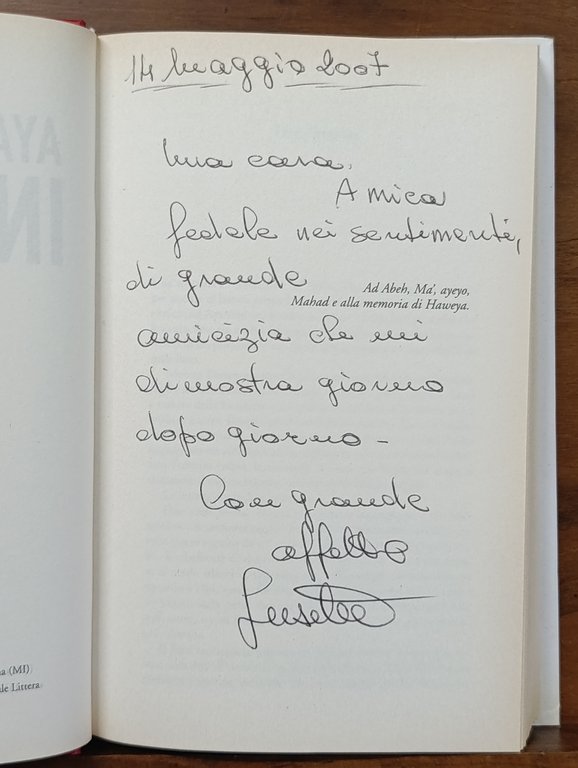 14 Maggio 2007
Una cara,
Amica
fedele nei sentimenti,
di grande
Ad Abeh, Ma', ayeyo,
Mahad e alla memoria di Haweya.
amicizia che mi
dimostra giorno
dopo giorno -
Con grande
affetto
(MI)
Littera